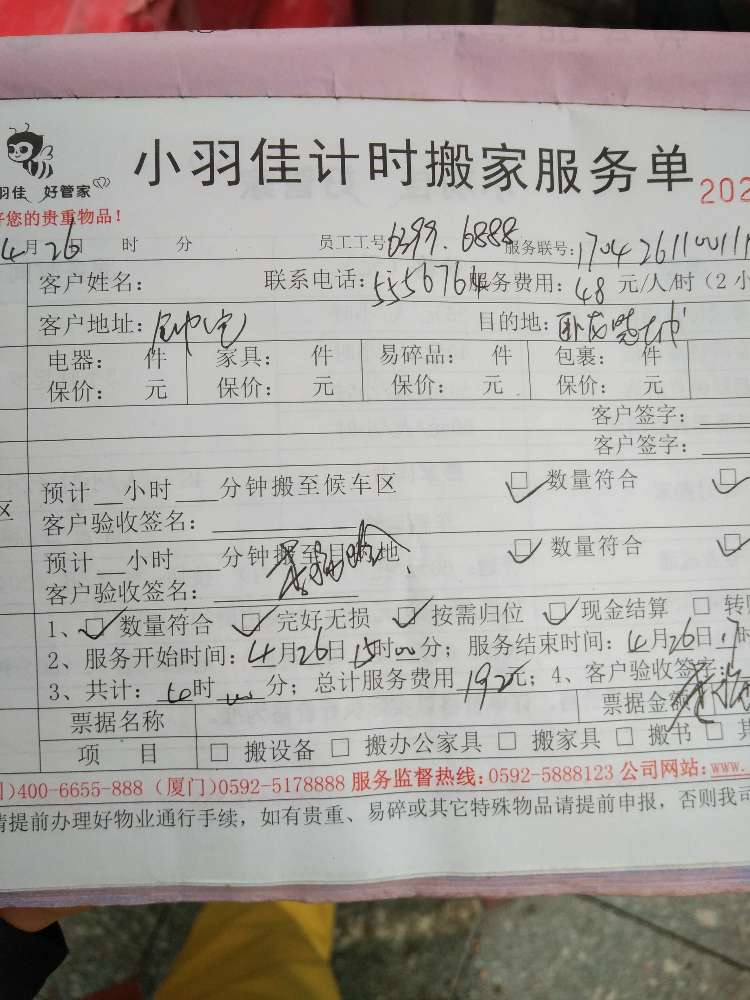 小羽佳计时搬家服务单
202
羽佳 好管家
好您的贵重物品！
4月26日 时 分 员工工号6399.6888 服务联号：170426110011
客户姓名： 联系电话：5556764 服务费用：48 元/人/时（2 小
客户地址： 目的地：
电器： 件 家具： 件 易碎品： 件 包裹： 件
保价： 元 保价： 元 保价： 元 保价： 元
客户签字：
客户签字：
预计__小时___分钟搬至候车区 ☑ 数量符合
区
客户验收签名：
预计__小时___分钟搬至目的地 ☑ 数量符合
客户验收签名：
1、☑ 数量符合 ☑ 完好无损 ☑ 按需归位 ☑ 现金结算 □ 转
2、服务开始时间：4月26日15时00分；服务结束时间：4月26日17时
3、共计： 时 分；总计服务费用192元；4、客户验收签字：
票据名称 票据金额
项 目 □ 搬设备 □ 搬办公家具 □ 搬家具 □ 搬书 □ 其
)400-6655-888（厦门）0592-5178888 服务监督热线：0592-5888123 公司网站：www.
请提前办理好物业通行手续，如有贵重、易碎或其它特殊物品请提前申报，否则我司